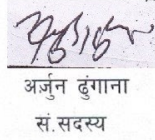 अर्जुन ढुंगाना
सं.सदस्य